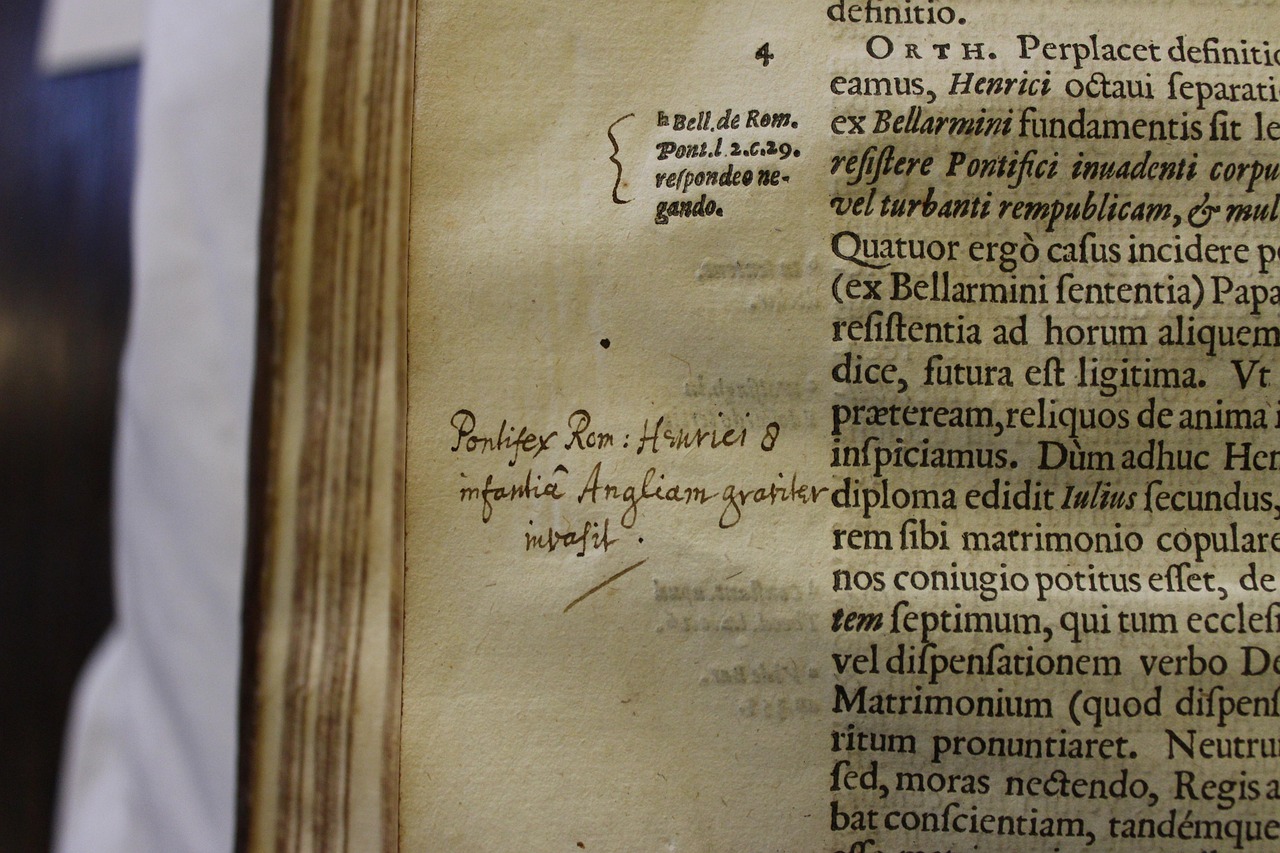 definitio.
4
ORTH. Perplacet definitio
eamus, Henrici octaui ſeparati
h Bell. de Rom.
Pont. l. 2. c. 29.
reſpondeo ne-
gando.
ex Bellarmini fundamentis ſit le
reſiſtere Pontifici inuadenti corpu
vel turbanti rempublicam, & mul
Quatuor ergò caſus incidere p
(ex Bellarmini ſententia) Papa
reſiſtentia ad horum aliquem
dice, futura eſt ligitima. Vt
præteream, reliquos de anima i
Pontifex Rom: Henrici 8
infantiā Angliam graviter
invasit.
inſpiciamus. Dùm adhuc Hen
diploma edidit Iulius ſecundus,
rem ſibi matrimonio copulare
nos coniugio potitus eſſet, de
tem ſeptimum, qui tum eccleſi
vel diſpenſationem verbo De
Matrimonium (quod diſpenſ
ritum pronuntiaret. Neutru
ſed, moras nectendo, Regis a
bat conſcientiam, tandémque